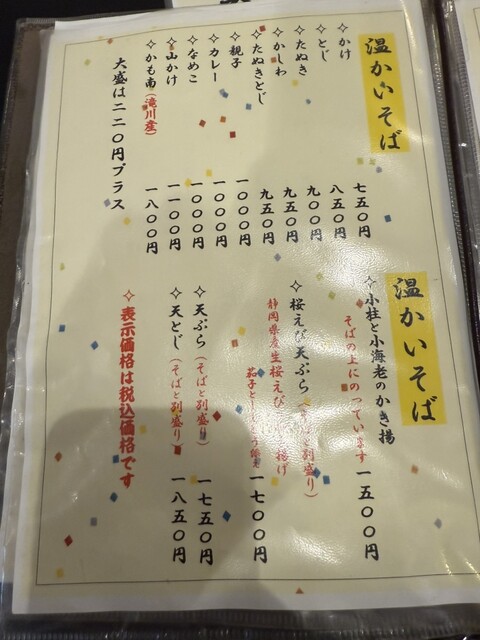 温かいそば
✧かけ 七五〇円
✧とじ 八五〇円
✧たぬき 九〇〇円
✧かしわ 九五〇円
✧たぬきとじ 九五〇円
✧親子 一〇〇〇円
✧カレー 一〇〇〇円
✧なめこ 一〇〇〇円
✧山かけ 一一〇〇円
✧かも南(滝川産) 一八〇〇円
大盛は二二〇円プラス
温かいそば
✧小柱と小海老のかき揚 一五〇〇円
そばの上にのっています
✧桜えび天ぷら(そばと別盛り) 一七〇〇円
静岡県産生桜えび 揚げ
茄子とししとう
✧天ぷら(そばと別盛り) 一七五〇円
✧天とじ(そばと別盛り) 一八五〇円
✧表示価格は税込価格です